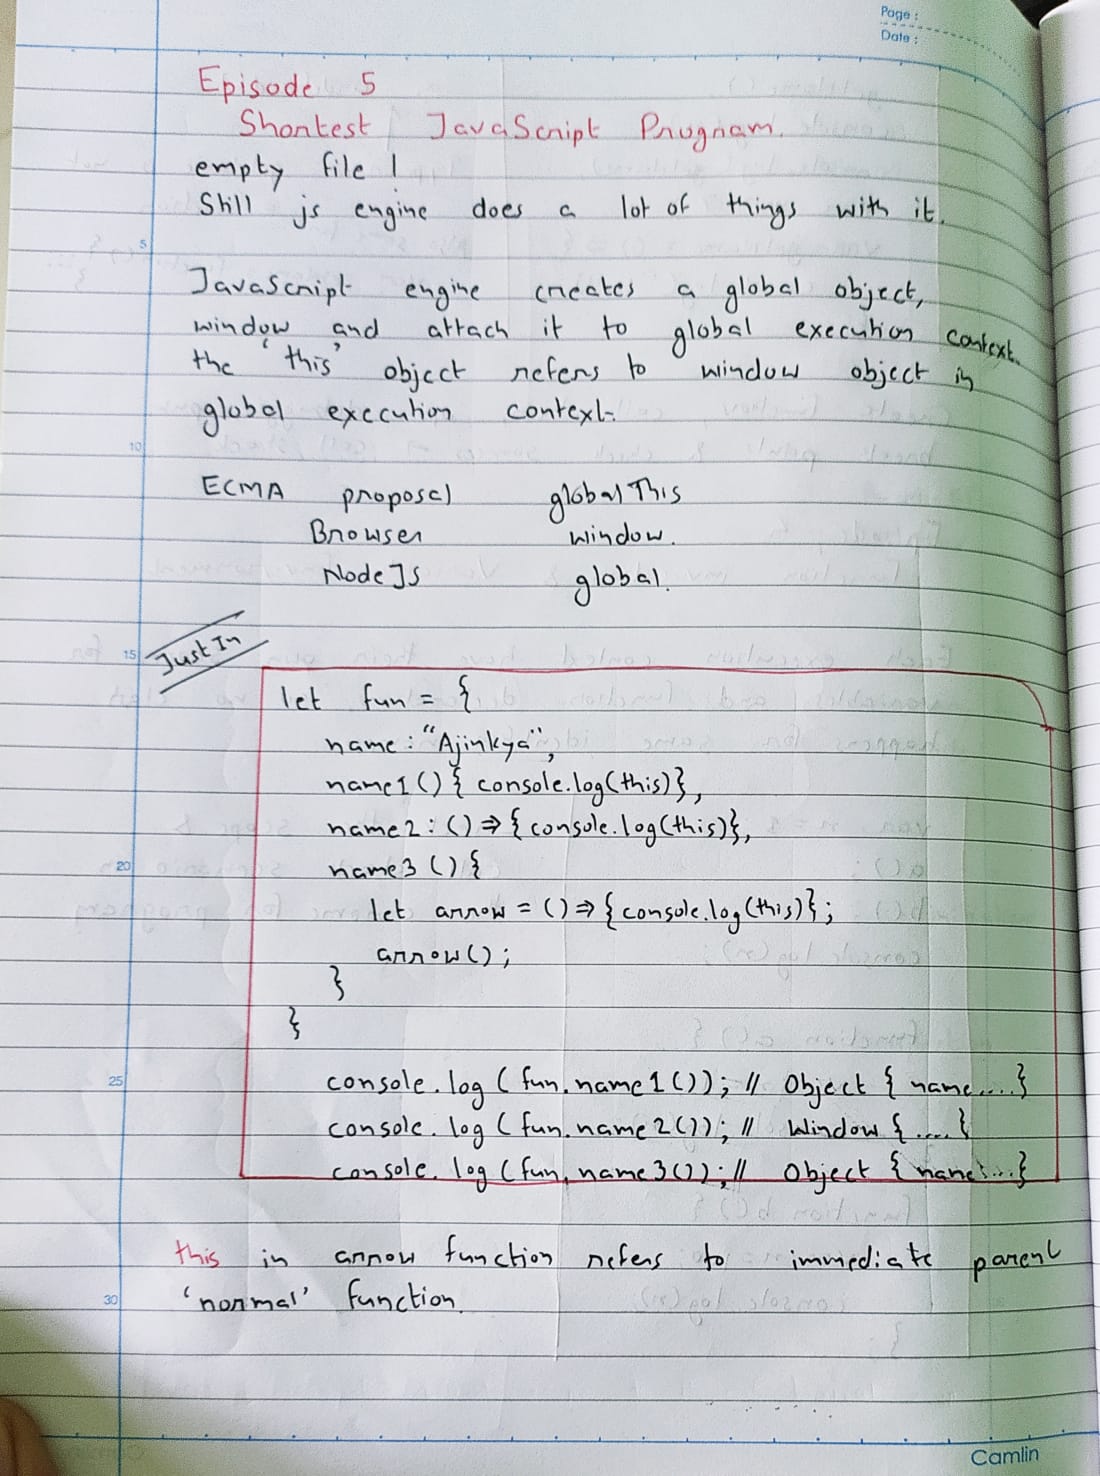 Page :
Date :
Episode 5
Shortest JavaScript Program.
empty file !
Still js engine does a lot of things with it.
5
JavaScript engine creates a global object,
window and attach it to global execution context.
the 'this' object refers to window object in
global execution context.
10
ECMA proposal globalThis
Browser window.
NodeJS global.
15 Just In
let fun = {
name : "Ajinkya",
name1 () { console.log(this)},
name2 : () => { console.log(this)},
20 name3 () {
let arrow = () => { console.log(this)};
arrow();
}
}
25 console.log ( fun.name1 ()); // Object { name....}
console.log ( fun.name2()); // Window { .... {
console.log ( fun.name3()); // Object { name:...}
this in arrow function refers to immediate parent
30 'normal' function.
Camlin